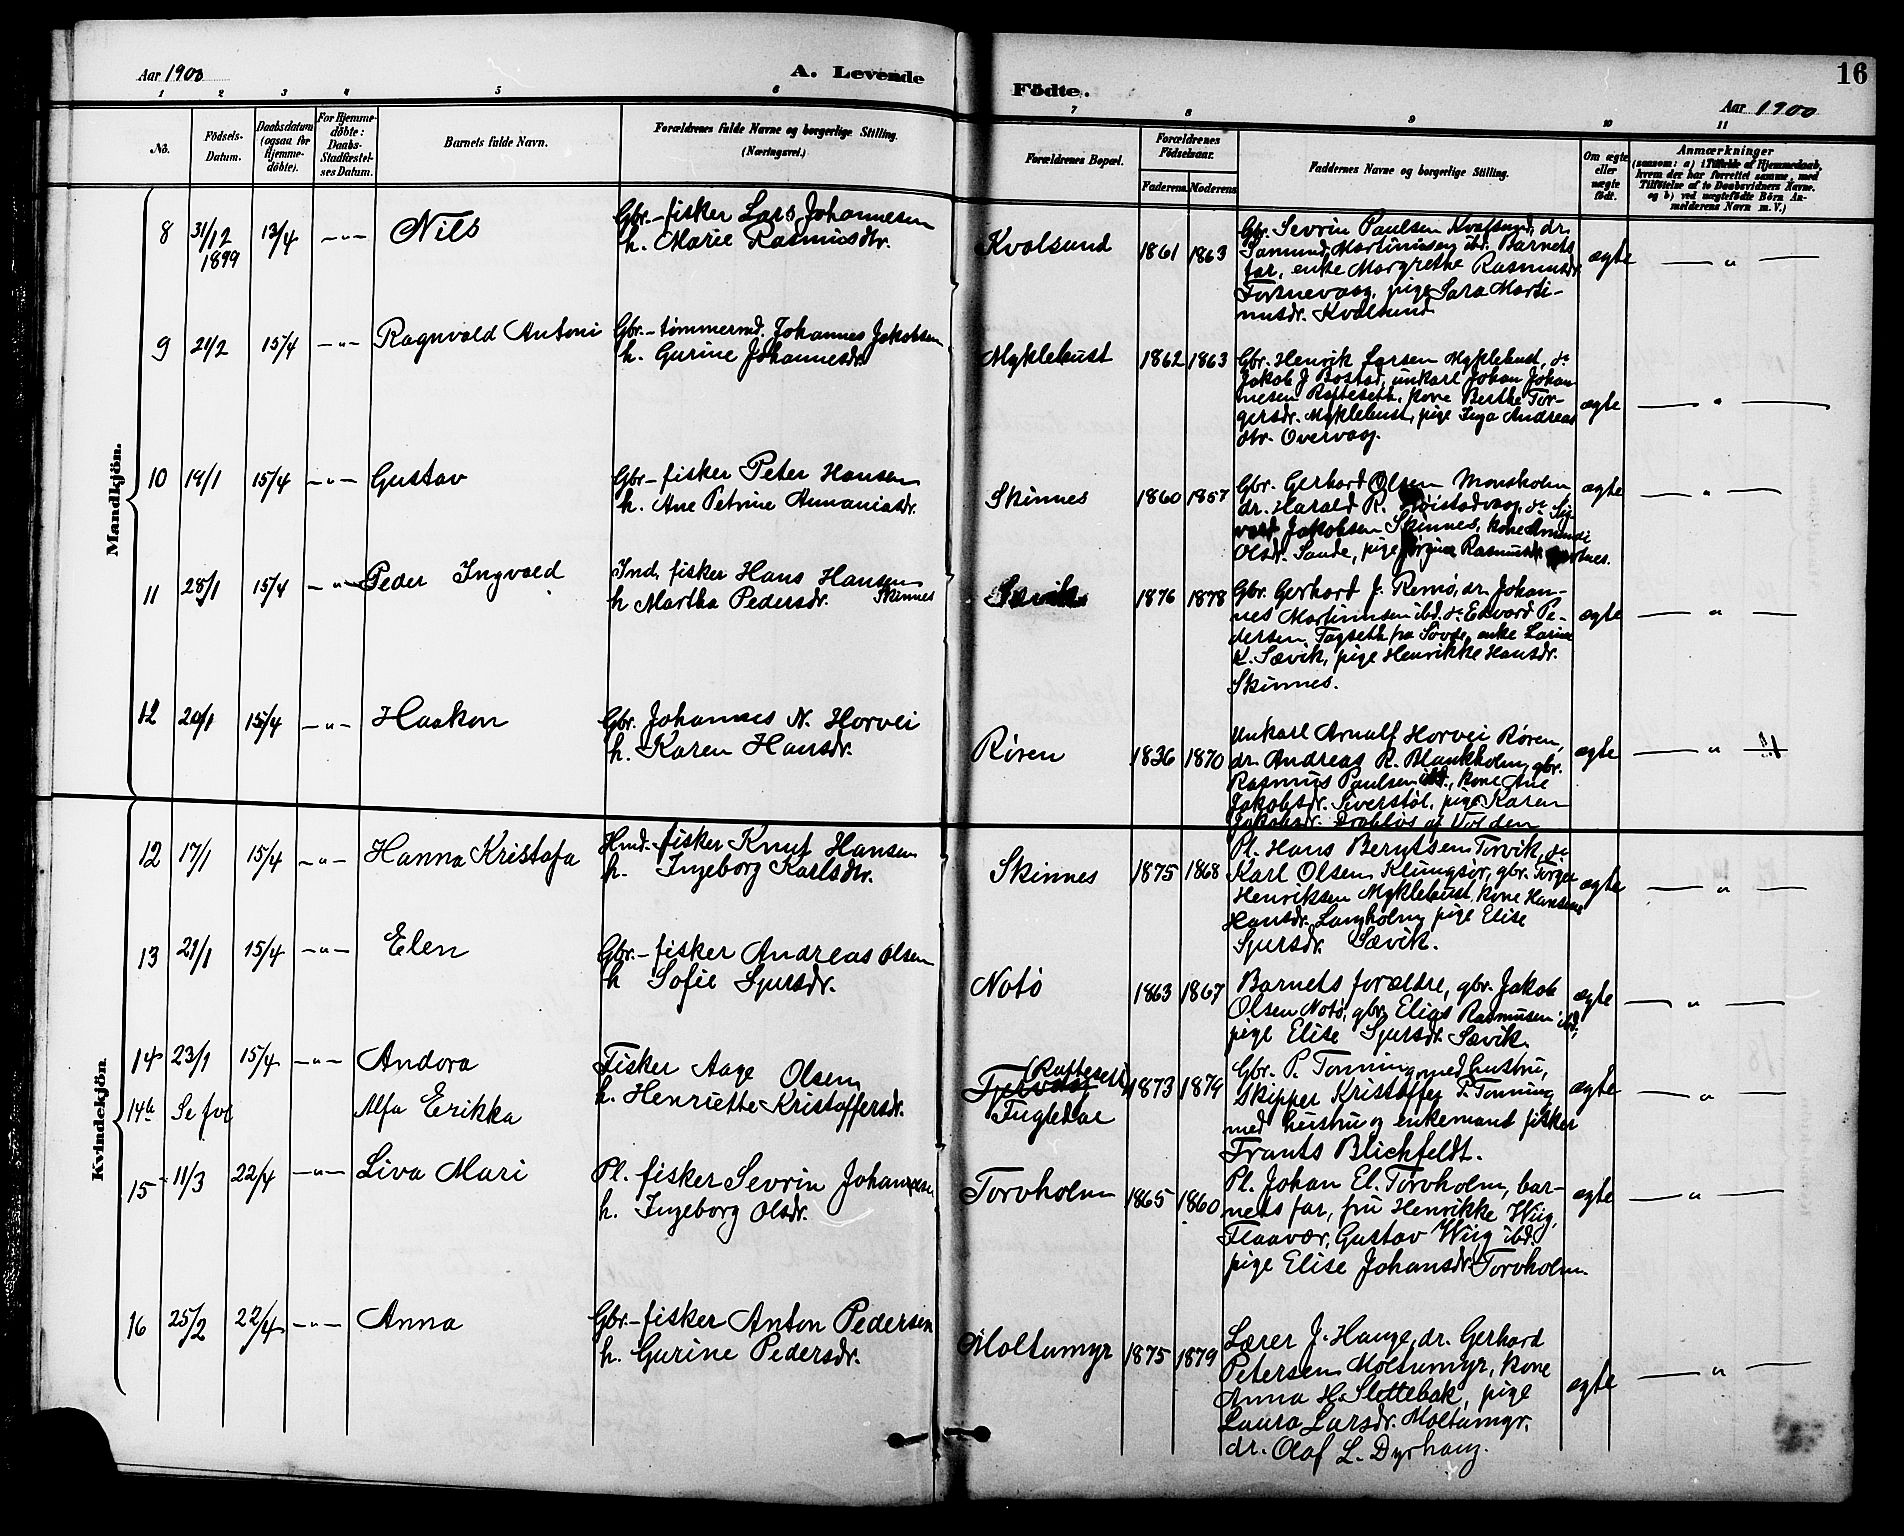 Aar 1900
A. Levende
Födte.
16
Aar 1900
1 2 3 4 5 6 7 8 9 10 11
No.
Födsels-Datum.
Daabsdatum (ogsaa for Hjemme-döbte).
For Hjemme-döbte: Daabs-Stadfæstel-ses Datum.
Barnets fulde Navn.
Forældrenes fulde Navne og borgerlige Stilling.
(Næringsvei.)
Forældrenes Bopæl.
Forældrenes Födselsaar.
Faderens. Moderens
Faddernes Navne og borgerlige Stilling.
Om ægte eller uægte födt.
Anmærkninger
(saasom: a) i Tilfælde af Hjemmedaab,
hvem der har forrettet samme, med
Tilföielse af to Daabsvidners Navne.
og b) ved uægtefödte Börn An-
melderens Navn m. V.)
Mandkjön.
8 31/12 1899 13/4 —"— Nils
Gbr.-fisker Lars Johannesen
h. Marie Rasmusdtr.
Kvalsund 1861 1863
Gbr. Sevrin Paulsen Kvalsund, dr.
Samund Martinusen ibd. Barnets
far, enke Margrethe Rasmusdr.
Torsnevaag, pige Sara Marti-
nusdr. Kvalsund
ægte — " —
9 21/2 15/4 —"— Ragnvald Antoni
Gbr.-tømmermd. Johannes Jakobsen
h. Gurine Johannesdr.
Myklebust 1862 1863
Gbr. Henrik Larsen Myklebust, do
Jakob J Bostad, unkarl Johan Johan
nesen Rafteseth, kone Berthe Tor-
gersdr. Myklebust, pige Inga Andreas
dtr. Overvaag.
ægte — " —
10 19/1 15/4 —"— Gustav
Gbr-fisker Peter Hansen
h. Ane Petrine Annaniasdr.
Skinnes 1860 1857
Gbr. Gerhard Olsen Monsholm
dr. Harald R. Røistadvaag, do Sig
vard Jakobsen Skinnes, kone
Olsdr. Sande, pige Jørgine Rasmusdr.
ægte — " —
11 28/1 15/4 —"— Peder Ingvald
Ind. fisker Hans Hansen
h Martha Pedersdr. Skinnes
Sævik 1876 1878
Gbr. Gerhard J. Remø, dr. Johan-
nes Martinusen ibd. do Edvard Pe-
dersen Tagseth fra Søvde, enke Larine
K. Sævik, pige Henrikke Hansdr.
Skinnes.
ægte — " —
12 20/1 15/4 —"— Haakon
Gbr. Johannes N. Horvei
h. Karen Hansdr.
Røren 1836 1870
Unkarl Arnulf Horvei Røren,
dr. Andreas R. Blankholm, gbr.
Rasmus Paulsen ibd., kone Ane
Jakobsdr. Siverstøl, pige Karen
Jakobsdr. Drabløs af Volden
ægte — " —
Kvindekjön
12 17/1 15/4 —"— Hanna Kristofa
Hmd.-fisker Knut Hansen
h. Ingeborg Karlsdtr.
Skinnes 1875 1868
Pl. Hans Berntsen Torvik, do
Karl Olsen Klungsør, gbr. Torger
Henriksen Myklebust, kone Hansine
Hansdr. Langholm, pige Elise
Sjursdr. Sævik.
ægte — " —
13 21/1 15/4 —"— Elen
Gbr.-fisker Andreas Olsen
h Sofie Sjursdr.
Notø 1863 1867
Barnets forældre, gbr. Jakob
Olsen Notø, gbr. Elias Rasmusen ibd,
pige Elise Sjursdr. Sævik.
ægte — " —
14 23/1 15/4 —"— Andora
14a Se for Alfa Erikka
Fisker Aage Olsen
h. Henriette Kristoffersdr.
(Rafteseth
Fugledal 1873 1879
Gbr. P. Tonning med hustru,
Skipper Kristoffer F. Tonning
med hustru og enkemand fisker
Frants Blichfeldt.
ægte — " —
15 11/3 22/4 —"— Liva Mari
Pl. fisker Sevrin Johannesen
h. Ingeborg Olsdr.
Torvholm 1865 1860
Pl. Johan El. Torvholm, bar-
nets far, fru Henrikke Wiig,
Flaavær, Gustav Wiig ibd.
pige Elise Johansdr. Torvholm.
ægte — " —
16 25/2 22/4 —"— Anna
Gbr.-fisker Anton Pedersen
h. Gurine Pedersdr.
Moltumyr 1875 1879
Lærer J. Hauge, dr. Gerhard
Petersen Moltumyr, kone
Anna H. Slottebak, pige
Laura Larsdr. Moltumyr.
dr. Olaf L. Dyrhaug.
ægte — " —